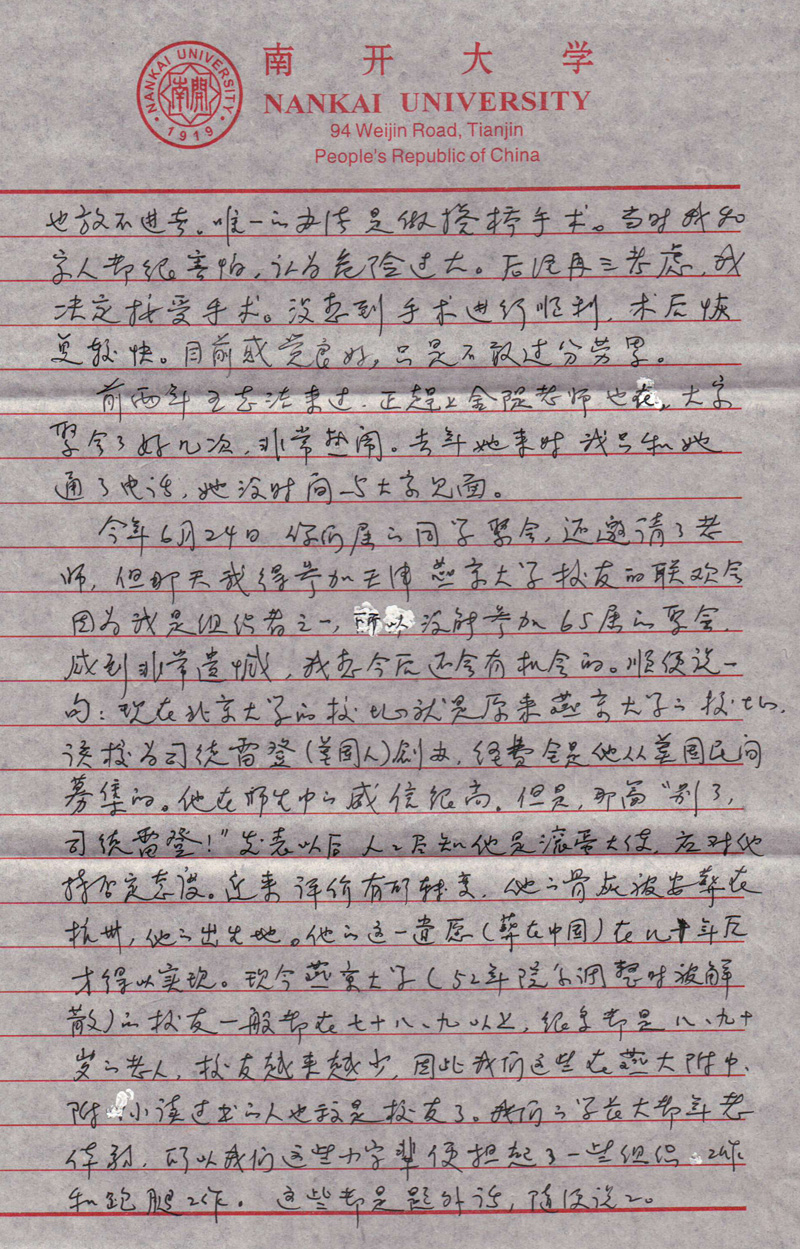 南开大学
NANKAI UNIVERSITY
94 Weijin Road, Tianjin
People's Republic of China
NANKAI UNIVERSITY
南開
1919
也放不进去。唯一的办法是做搭桥手术。当时我和
家人都很害怕,认为危险过大。后经再三考虑,我
决定接受手术。没想到手术进行顺利,术后恢
复较快。目前感觉良好,只是不敢过分劳累。
前两年王志洁来过,正赶上金隄老师也在。大家
聚会了好几次,非常热闹。去年她来时我只和她
通了电话,她没时间与大家见面。
今年6月24日你们届的同学聚会,还邀请了老
师,但那天我得参加天津燕京大学校友的联欢会
因为我是组织者之一,所以没能参加65届的聚会,
感到非常遗憾,我想今后还会有机会的。顺便说一
句:现在北京大学的校址就是原来燕京大学的校址。
该校为司徒雷登(美国人)创办,经费全是他从美国民间
募集的。他在师生中的威信很高。但是,那篇“别了,
司徒雷登!”发表以后人人尽知他是滚蛋大使,应对他
持否定态度。近来评价有所转变,他的骨灰被安葬在
杭州,他的出生地。他的这一遗愿(葬在中国)在几十年后
才得以实现。现今燕京大学(52年院系调整时被解
散)的校友一般都在七十八、九以上,很多都是八、九十
岁的老人,校友越来越少,因此我们这些在燕大附中、
附小读过书的人也算是校友了。我们的学长大都年老
体弱,所以我们这些小字辈便担起了一些组织工作
和跑腿工作。这些都是题外话,随便说说。